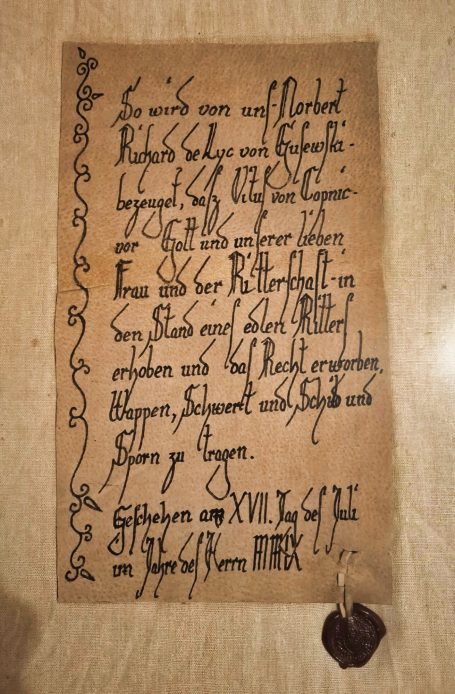 So wird von uns-Norbert
Richard de Lyc von Gusewski-
bezeuget, dasz Vitus von Copnic-
vor Gott und unserer lieben
Frau und der Ritterschaft-in
den Stand eines edlen Ritters
erhoben und das Recht erworben,
Wappen, Schwert und Schild und
Sporn zu tragen.
Geschehen am XVII. Tag des Juli
im Jahre des Herrn MMIX